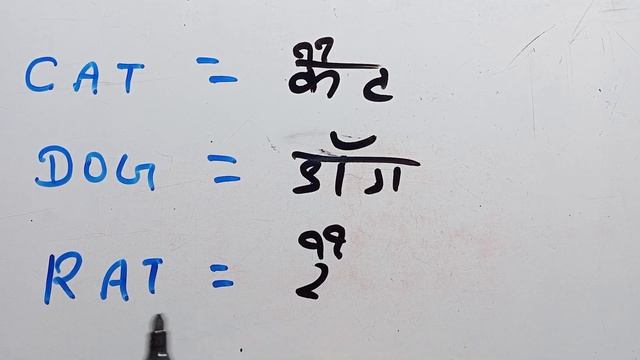 CAT = कैट
DOG = डॉग
RAT = रै